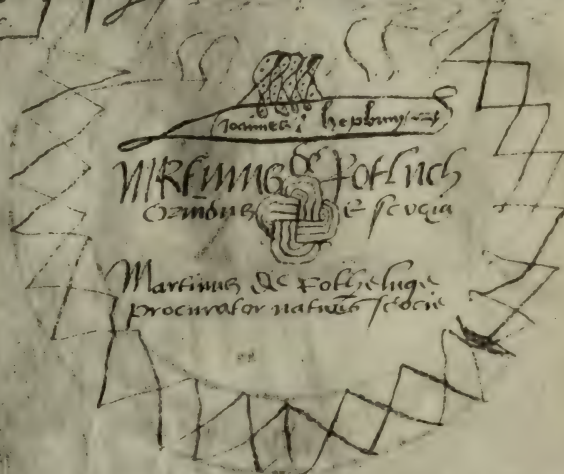 ioannes hepburn
MARtinus de Rotluch
oriundus e scocia
Martinus de Rotheluge
procurator nationis scocie